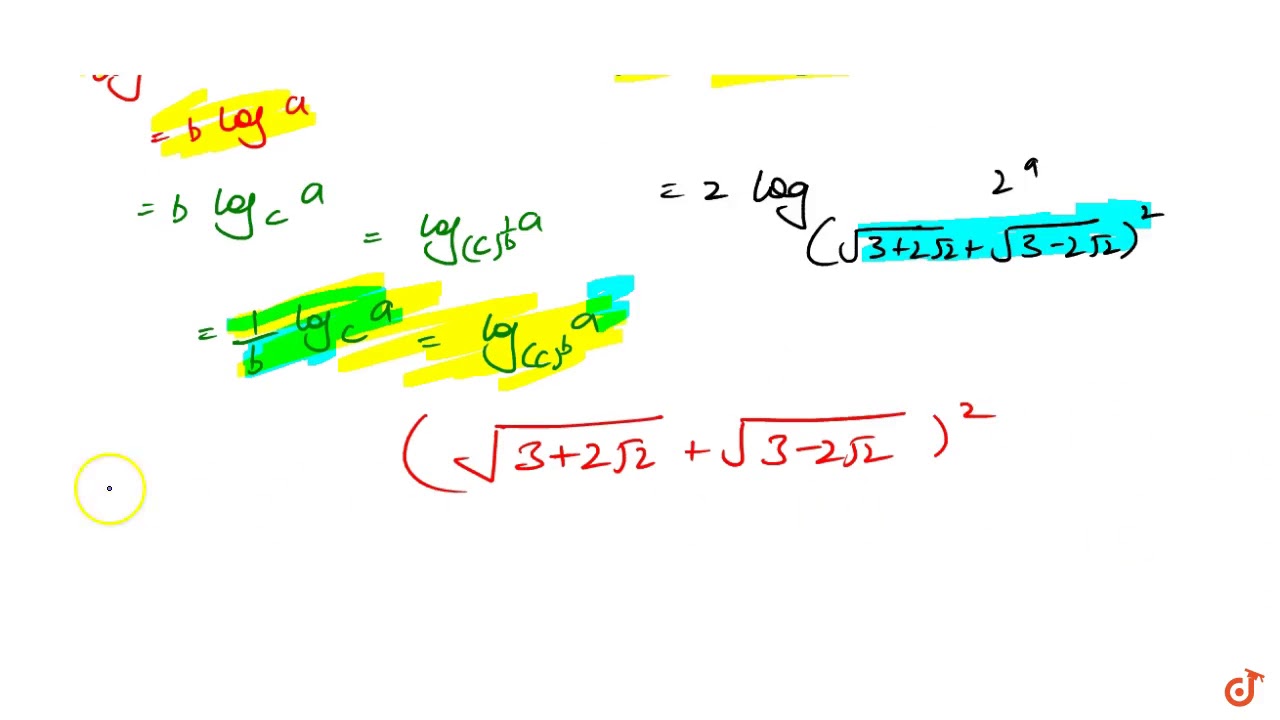 = b log a
= b log_c a
= log_(c)^{1/b} a
= 1/b log_c a = log_(c)^b a
= 2 log_{(√(3+2√2) + √(3-2√2))^2} 2^9
(√(3+2√2) + √(3-2√2))^2